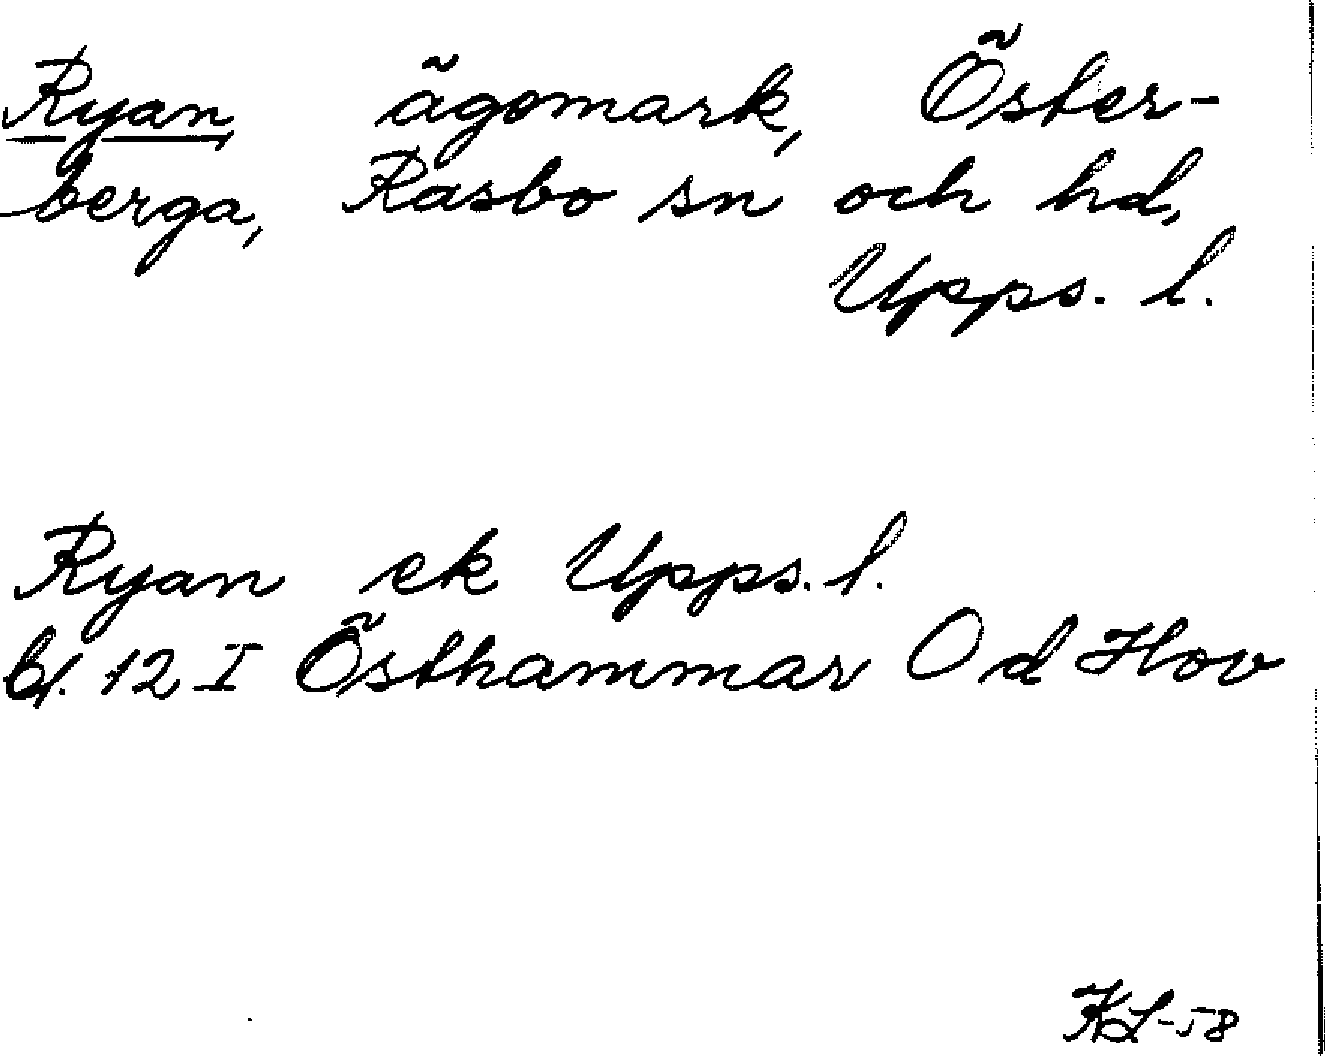 Ryan, ägomark, Öster-
berga, Rasbo sn och hd,
Upps. l.
Ryan ek Upps. l.
bl. 12 I Östhammar Od Hov
KL-58